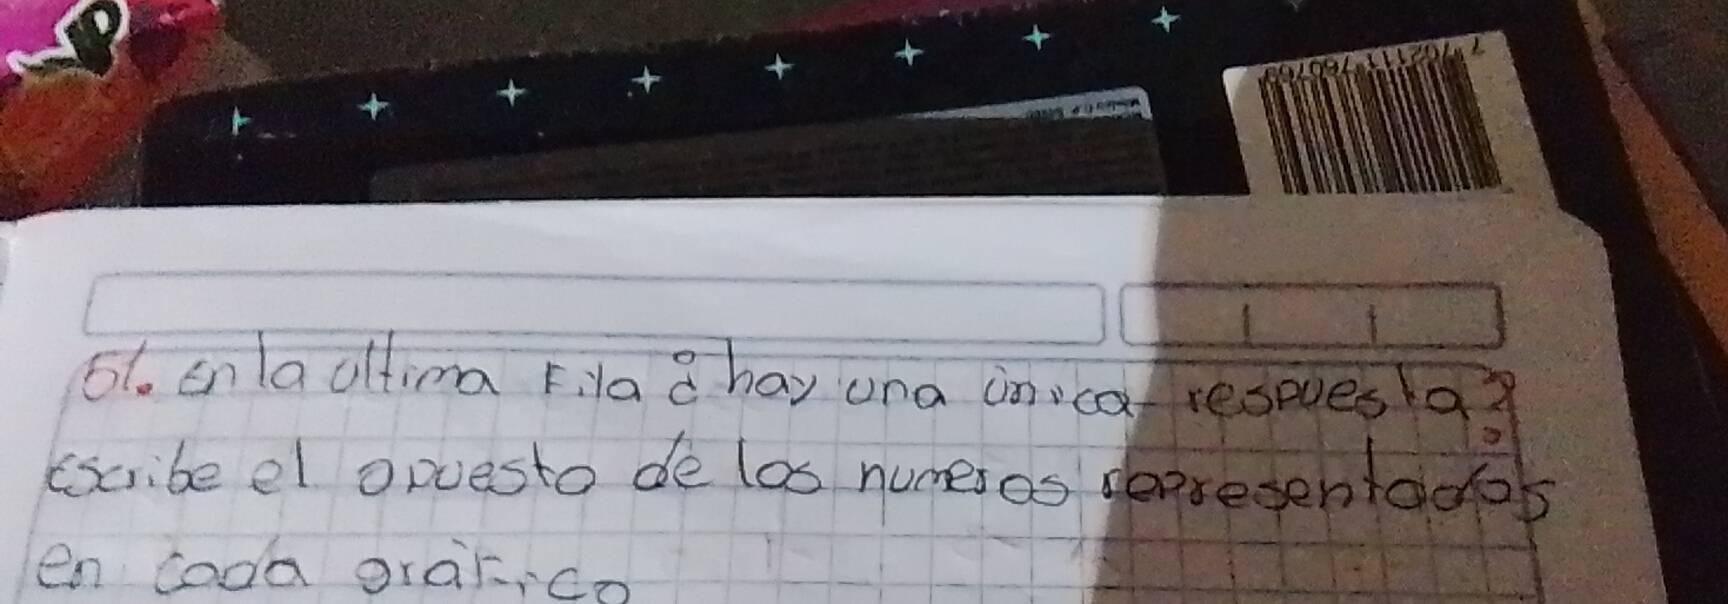 7 702111 760769
51. en la ultima Fila ¿ hay una única respuesta?
escribe el opuesto de los numeros representados
en cada gráfico